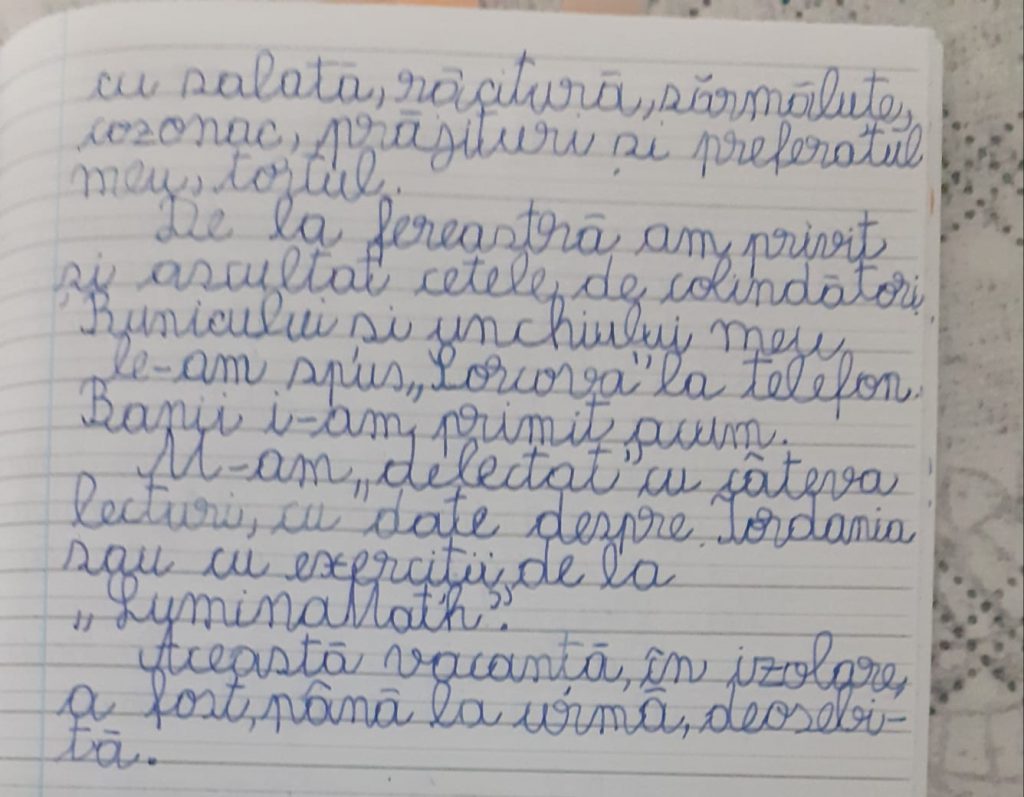 cu salată, răcitură, sărmăluțe,
cozonac, prăjituri și preferatul
meu, tortul.
De la fereastră am privit
și ascultat cetele de colindători.
Bunicului și unchiului meu
le-am spus „Sorcova" la telefon.
Banii i-am primit acum.
M-am „delectat" cu câteva
lecturi, cu date despre Iordania
sau cu exerciții de la
„LuminaMath".
Această vacanță, în izolare,
a fost, până la urmă, deosebi-
tă.